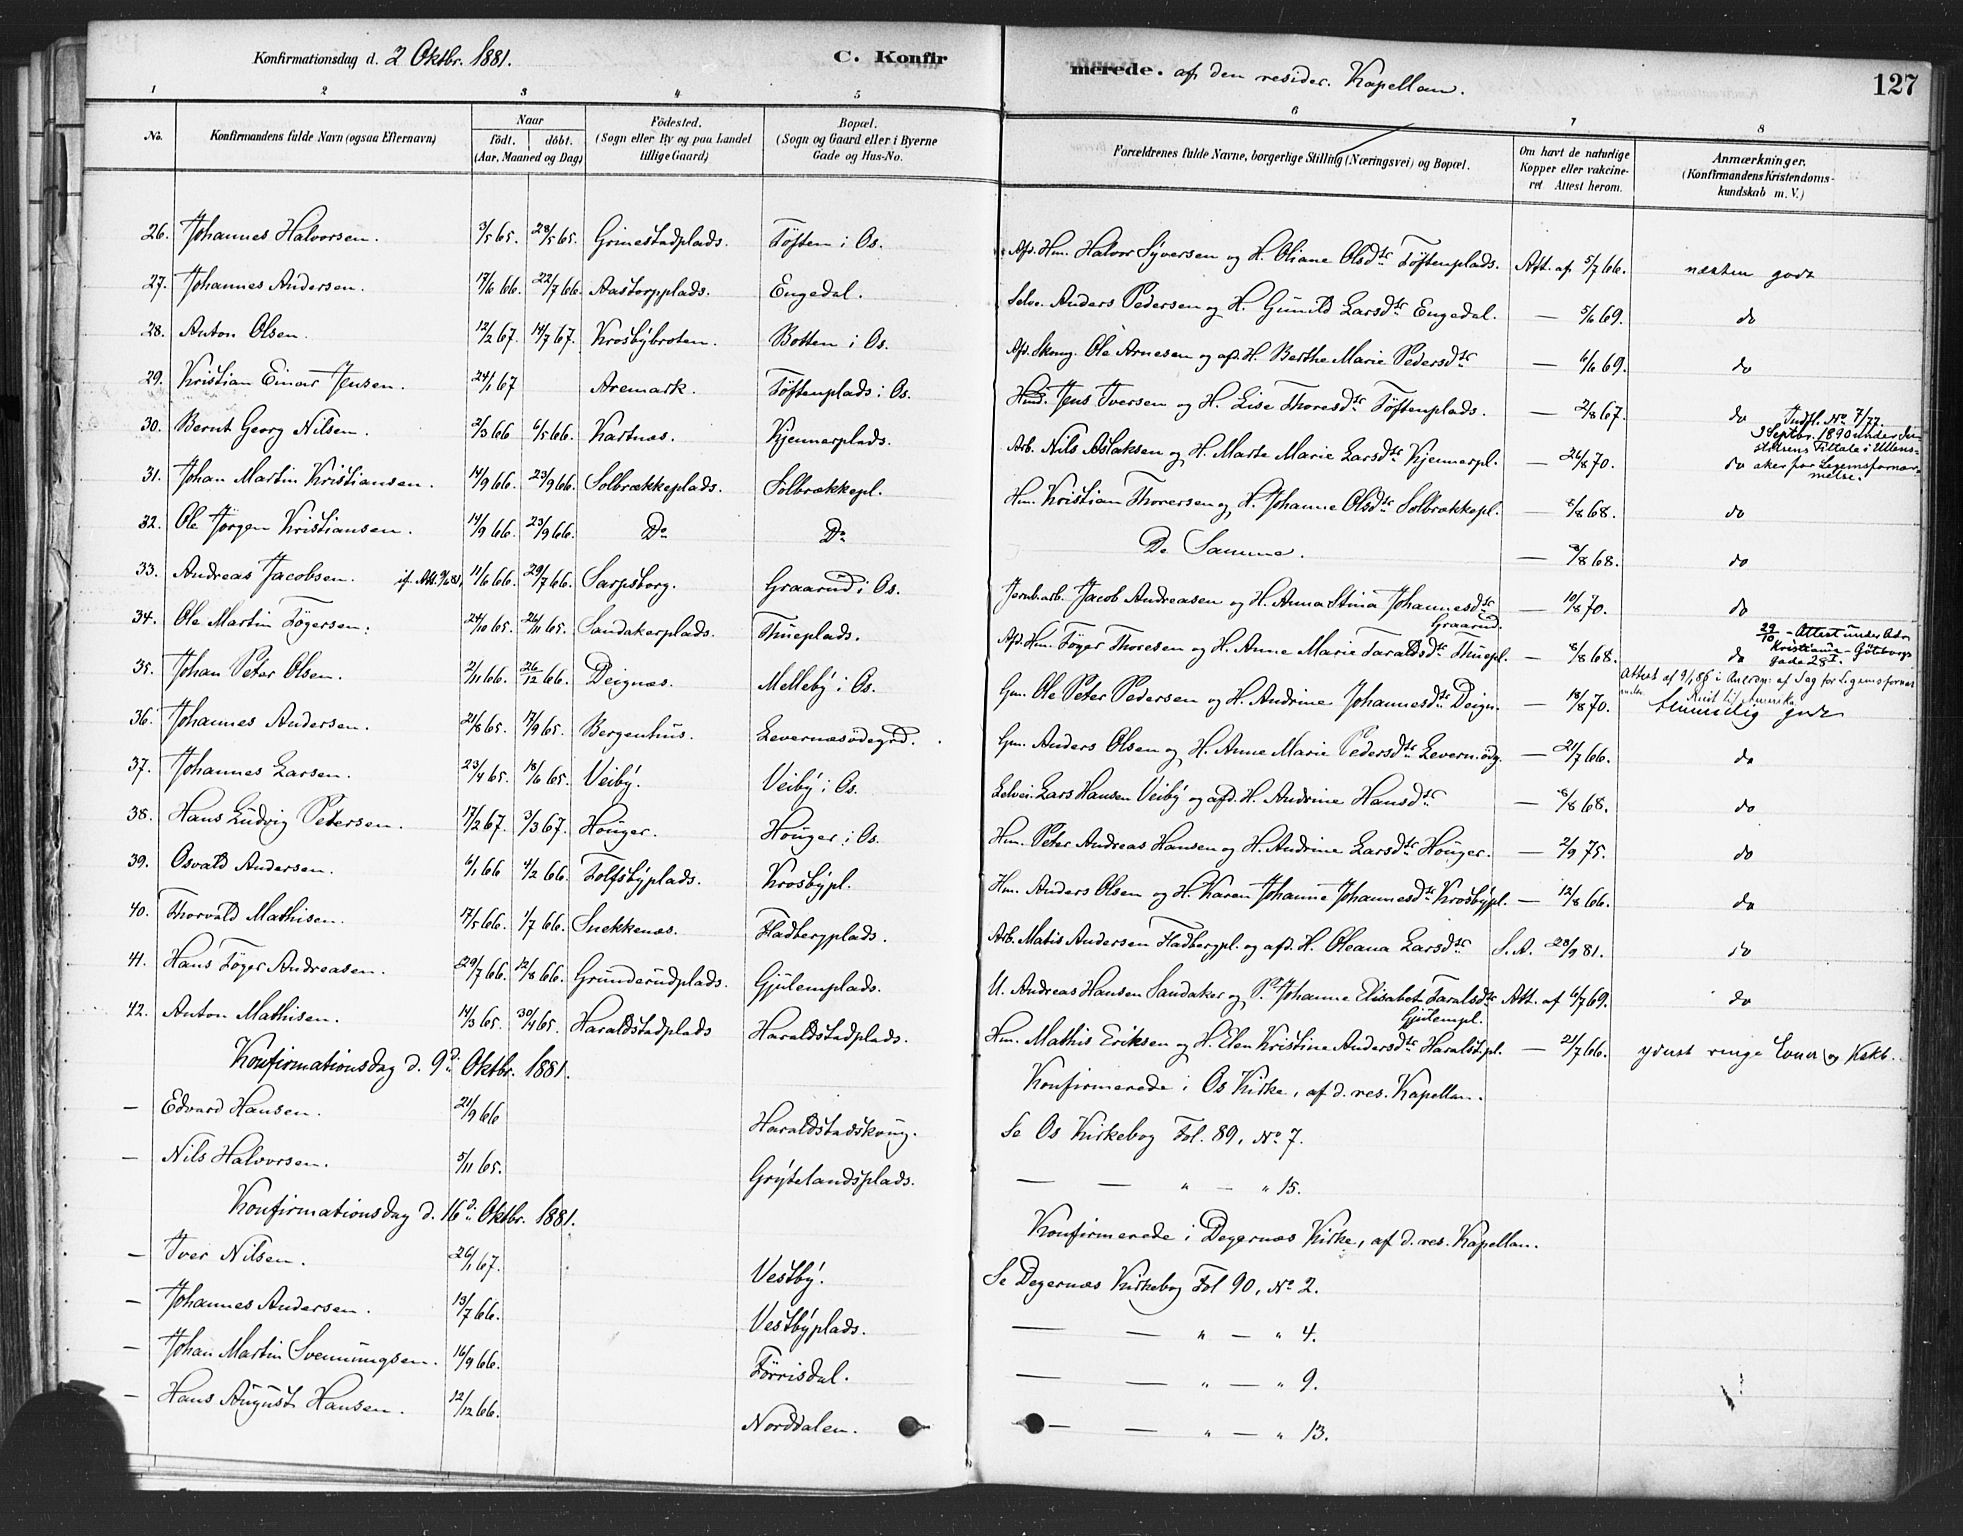 Konfirmationsdag d. 2 Oktbr. 1881. C. Konfirmerede. af den resider. Kapellan. 127
1 2 3 4 5 6 7 8
No. Konfirmandens fulde Navn (ogsaa Efternavn) Naar født. døbt. (Aar, Maaned og Dag) Fødested. (Sogn eller By og paa Landet tillige Gaard) Bopæl. (Sogn og Gaard eller i Byerne Gade og Hus-No. Forældrenes fulde Navne, borgerlige Stilling (Næringsvei) og Bopæl. Om havt de naturlige Kopper eller vakcineret Attest herom. Anmærkninger. (Konfirmandens Kristendomskundskab m. V.)
26. Johannes Halvorsen. 3/5 65. 28/5 65. Grimestadplads. Tøften i Os. Afs. Hm. Halvor Syversen og H. Oliane Olsdtr Tøftenplads. Att. af 5/7 66. næsten godt
27. Johannes Andersen. 17/6 66. 22/7 66. Aastorpplads. Engedal. Selve. Anders Pedersen og H. Gunild Larsdtr Engedal. — 5/6 69. do
28. Anton Olsen. 12/2 67. 14/7 67. Krosbybroten. Botten i Os. Afs. Skoug. Ole Arnesen og afd. H. Berthe Marie Pedersdtr — 6/6 69. do
29. Kristian Einar Jensen. 24/1 67 Aremark. Tøftenplads i Os. Hmd. Jens Iversen og H. Lise Thoresdtr Tøftenplads. — 2/8 67. do
30. Bernt Georg Nilsen. 2/3 66 6/5 66. Kartnæs. Kjennerplads. Arb. Nils Aslaksen og H. Marte Marie Larsdtr Kjennerpl. — 26/8 70. do Indfl. No 7/77. 3 Septbr. 1890 under Justitiens Tiltale i Ullensaker for Legemsfornærmelse.
31. Johan Martin Kristiansen. 14/9 66. 23/9 66. Solbrækkeplads. Solbrækkepl. Hm. Kristian Thoresen og H. Johanne Olsdtr Solbrækkepl. — 8/8 68. do
32. Ole Jørgen Kristiansen. 14/9 66. 23/9 66. Do Do De Samme. — 8/8 68. do
33. Andreas Jacobsen. if. Att. 9/6 81 11/6 66. 29/7 66. Sarpsborg. Graarud i Os. Jernb. arb. Jacob Andreasen og H. Anna Stina Johannesdtr Graarud. — 10/8 70. do
34. Ole Martin Tøgersen. 24/10 65. 26/11 65. Sandakerplads. Thueplads. Afs. Hm. Tøger Thoresen og H. Anne Marie Taraldsdtr Thuepl. — 8/8 68. do 29/10 - Attest under Adr. Kristiania - Göteborgs gade 28 I.
35. Johan Peter Olsen. 2/11 66. 26/12 66. Deignæs. Melleby i Os. Gm. Ole Peter Pedersen og H. Andrine Johannesdtr Deign. — 18/8 70. temmelig godt Attest af 9/1 86 i Anledn: af Sag for Legemsfornær
36. Johannes Andersen. 21/8 65. 17/9 65. Bergenhus. Levernæsødegrd. Gm. Anders Olsen og H. Anne Marie Pedersdtr Levernødg. — 21/7 66. do
37. Johannes Larsen. 23/4 65. 18/6 65. Veiby. Veiby i Os. Selvei. Lars Hansen Veiby og afd. H. Andrine Hansdtr — 8/8 68. do
38. Hans Ludvig Petersen. 17/2 67. 3/3 67. Houger. Houger i Os. Hm. Peter Andreas Hansen og H. Andrine Larsdtr Houger. — 2/9 75. do
39. Osvald Andersen. 6/1 66 4/2 66. Tolfsbyplads. Krosbypl. Hm. Anders Olsen og H. Karen Johanne Johannesdtr Krosbypl. — 12/8 66. do
40. Thorvald Mathisen. 17/5 66. 1/7 66. Snekkenæs. Fladbergplads. Arb. Matis Andersen Fladbergpl. og afd. H. Oleana Larsdtr S. A. 28/9 81. do
41. Hans Tøger Andreasen. 29/7 66. 12/8 66. Grunderudplads. Gjulemplads. U. Andreas Hansen Sandaker og P. Johanne Elisabet Taralsdtr Gjulempl. Att. af 6/7 69. do
42. Anton Mathisen. 14/3 65. 30/4 65. Haraldstadplads Haraldstadplads. Hm. Mathis Eriksen og H. Elen Kristine Andersdtr Haralst.pl. — 21/7 66. yderst ringe Evner og Kskb.
Konfirmationsdag d. 9d. Oktbr. 1881. Konfirmerede i Os Kirke, af d. res. Kapellan.
— Edvard Hansen. 21/9 66 Haraldstadskoug. Se Os Kirkebog Fol. 89, No 7.
— Nils Halvorsen. 5/11 65. Grytelandsplads. — — " — " 15.
Konfirmationsdag d. 16d. Oktbr. 1881. Konfirmerede i Degernæs Kirke, af d. res. Kapellan.
— Iver Nilsen. 26/1 67. Vestby. Se Degernæs Kirkebog Fol 90, No 2.
— Johannes Andersen. 13/7 66. Vestbyplads. — — " — " 4.
— Johan Martin Svenningsen. 16/9 66. Tørrisdal. — — " — " 9.
— Hans August Hansen. 12/12 66. Norddalen. — — " — " 13.